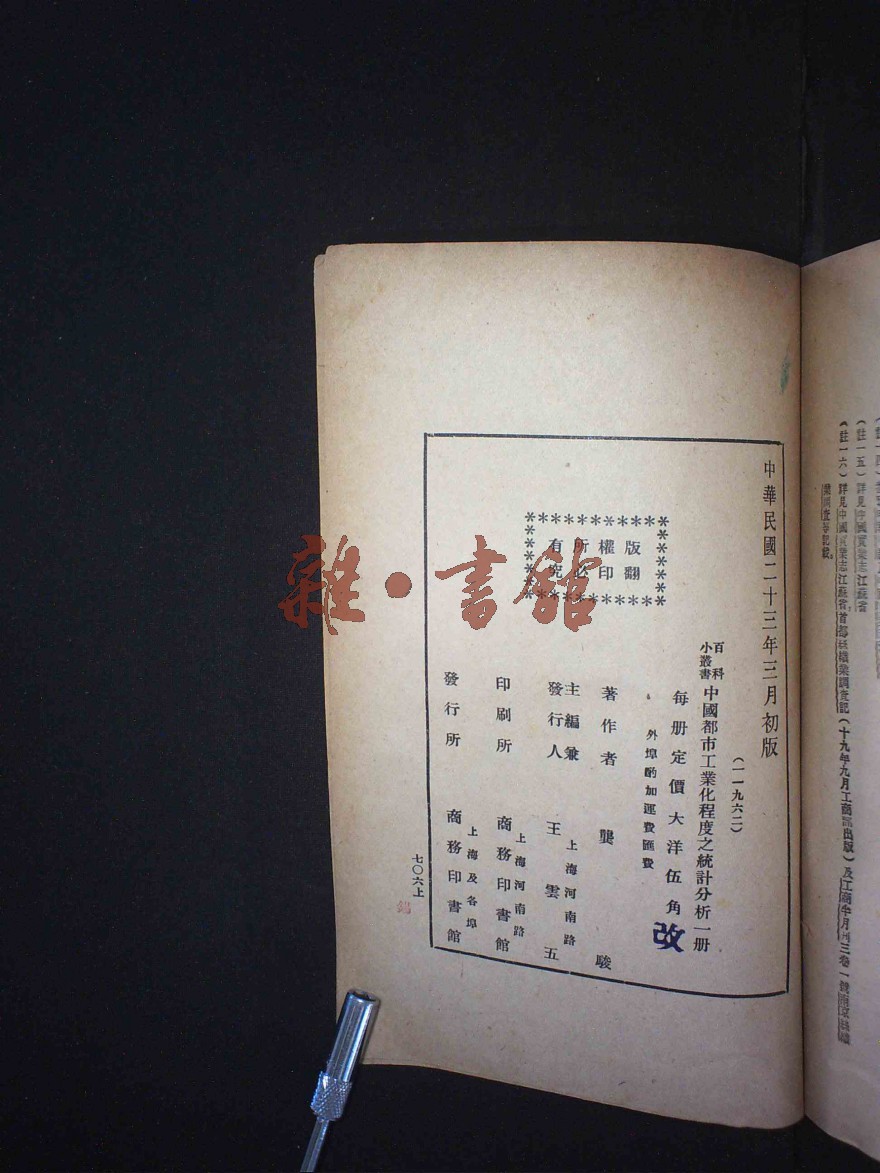 業調查等記載。
(註一六)詳見中國實業志江蘇省,首都絲織業調查記(十九年九月工商部出版)及工商半月刊三卷一號南京絲織
(註一五)詳見中國實業志江蘇省
中華民國二十三年三月初版
(一一九六二)
百科
小叢書
中國都市工業化程度之統計分析一册
每册定價大洋伍角
改
外埠酌加運費匯費
版權所有
翻印必究
著作者 龔駿
主編兼
發行人
王雲五
上海河南路
印刷所
上海河南路
商務印書館
發行所
上海及各埠
商務印書館
七〇六上
雜·書館